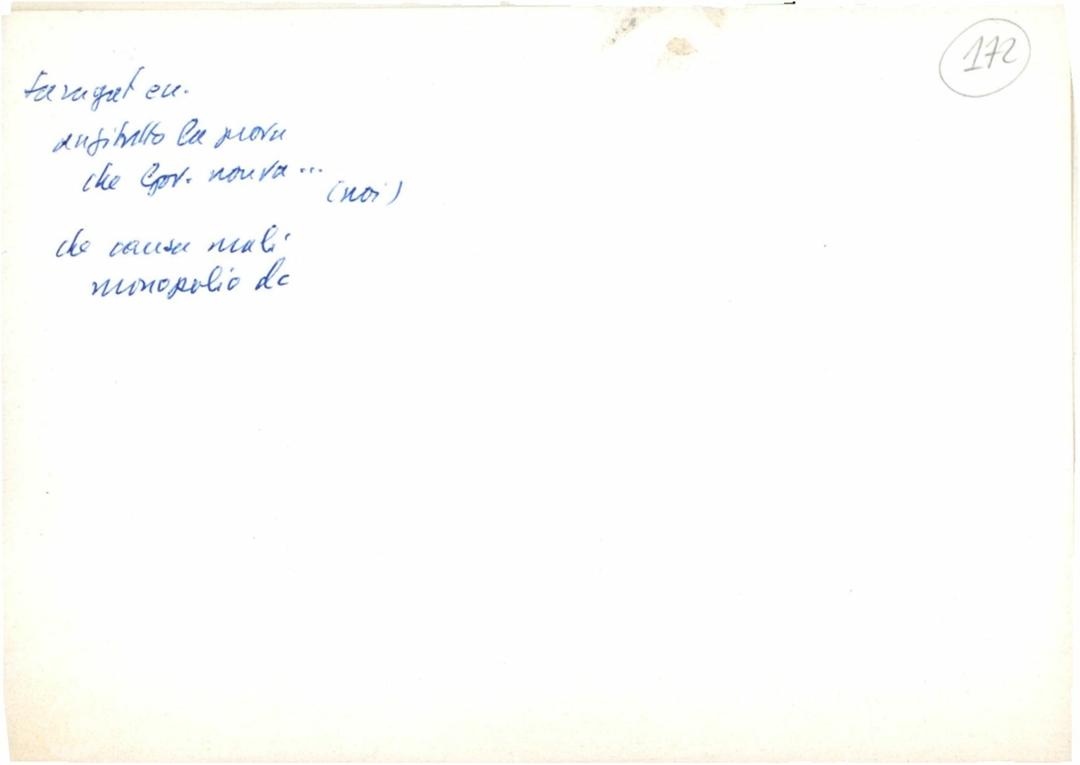 172
Saragat eu.
anzitutto la prova
che Gov. non va...
(noi)
che causa mali
monopolio dc